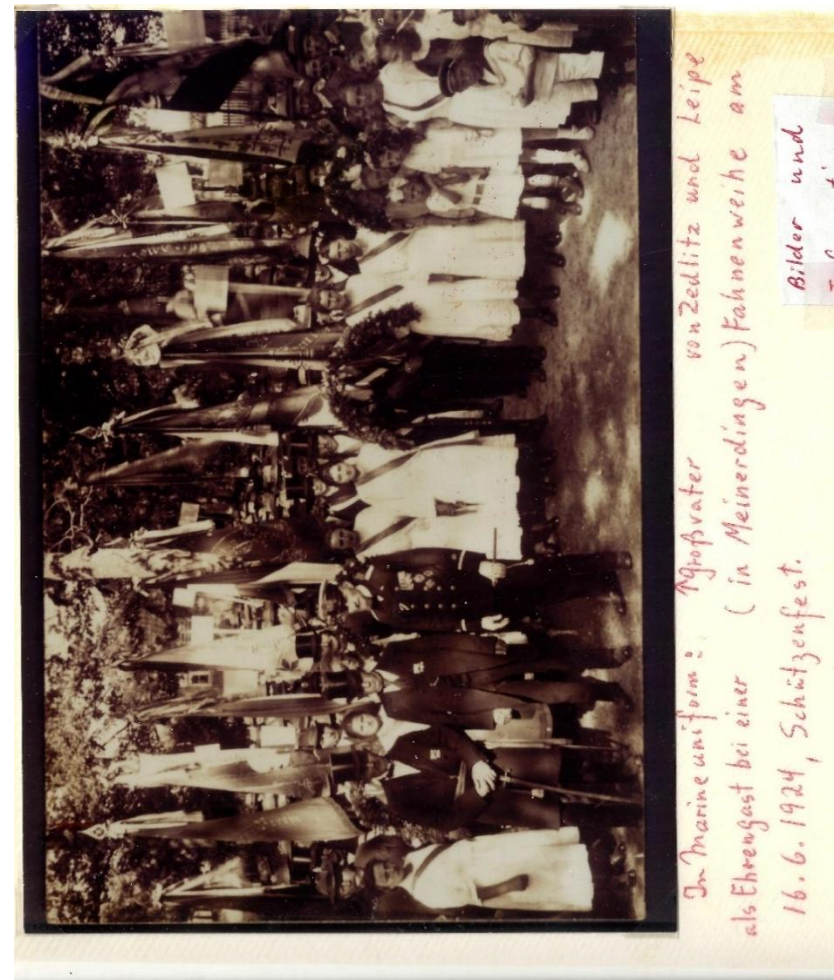 In Marineuniform: Großvater von Zedlitz und Leipe
als Ehrengast bei einer (in Meinerdingen) Fahnenweihe am
16.6.1924, Schützenfest.
Bilder und